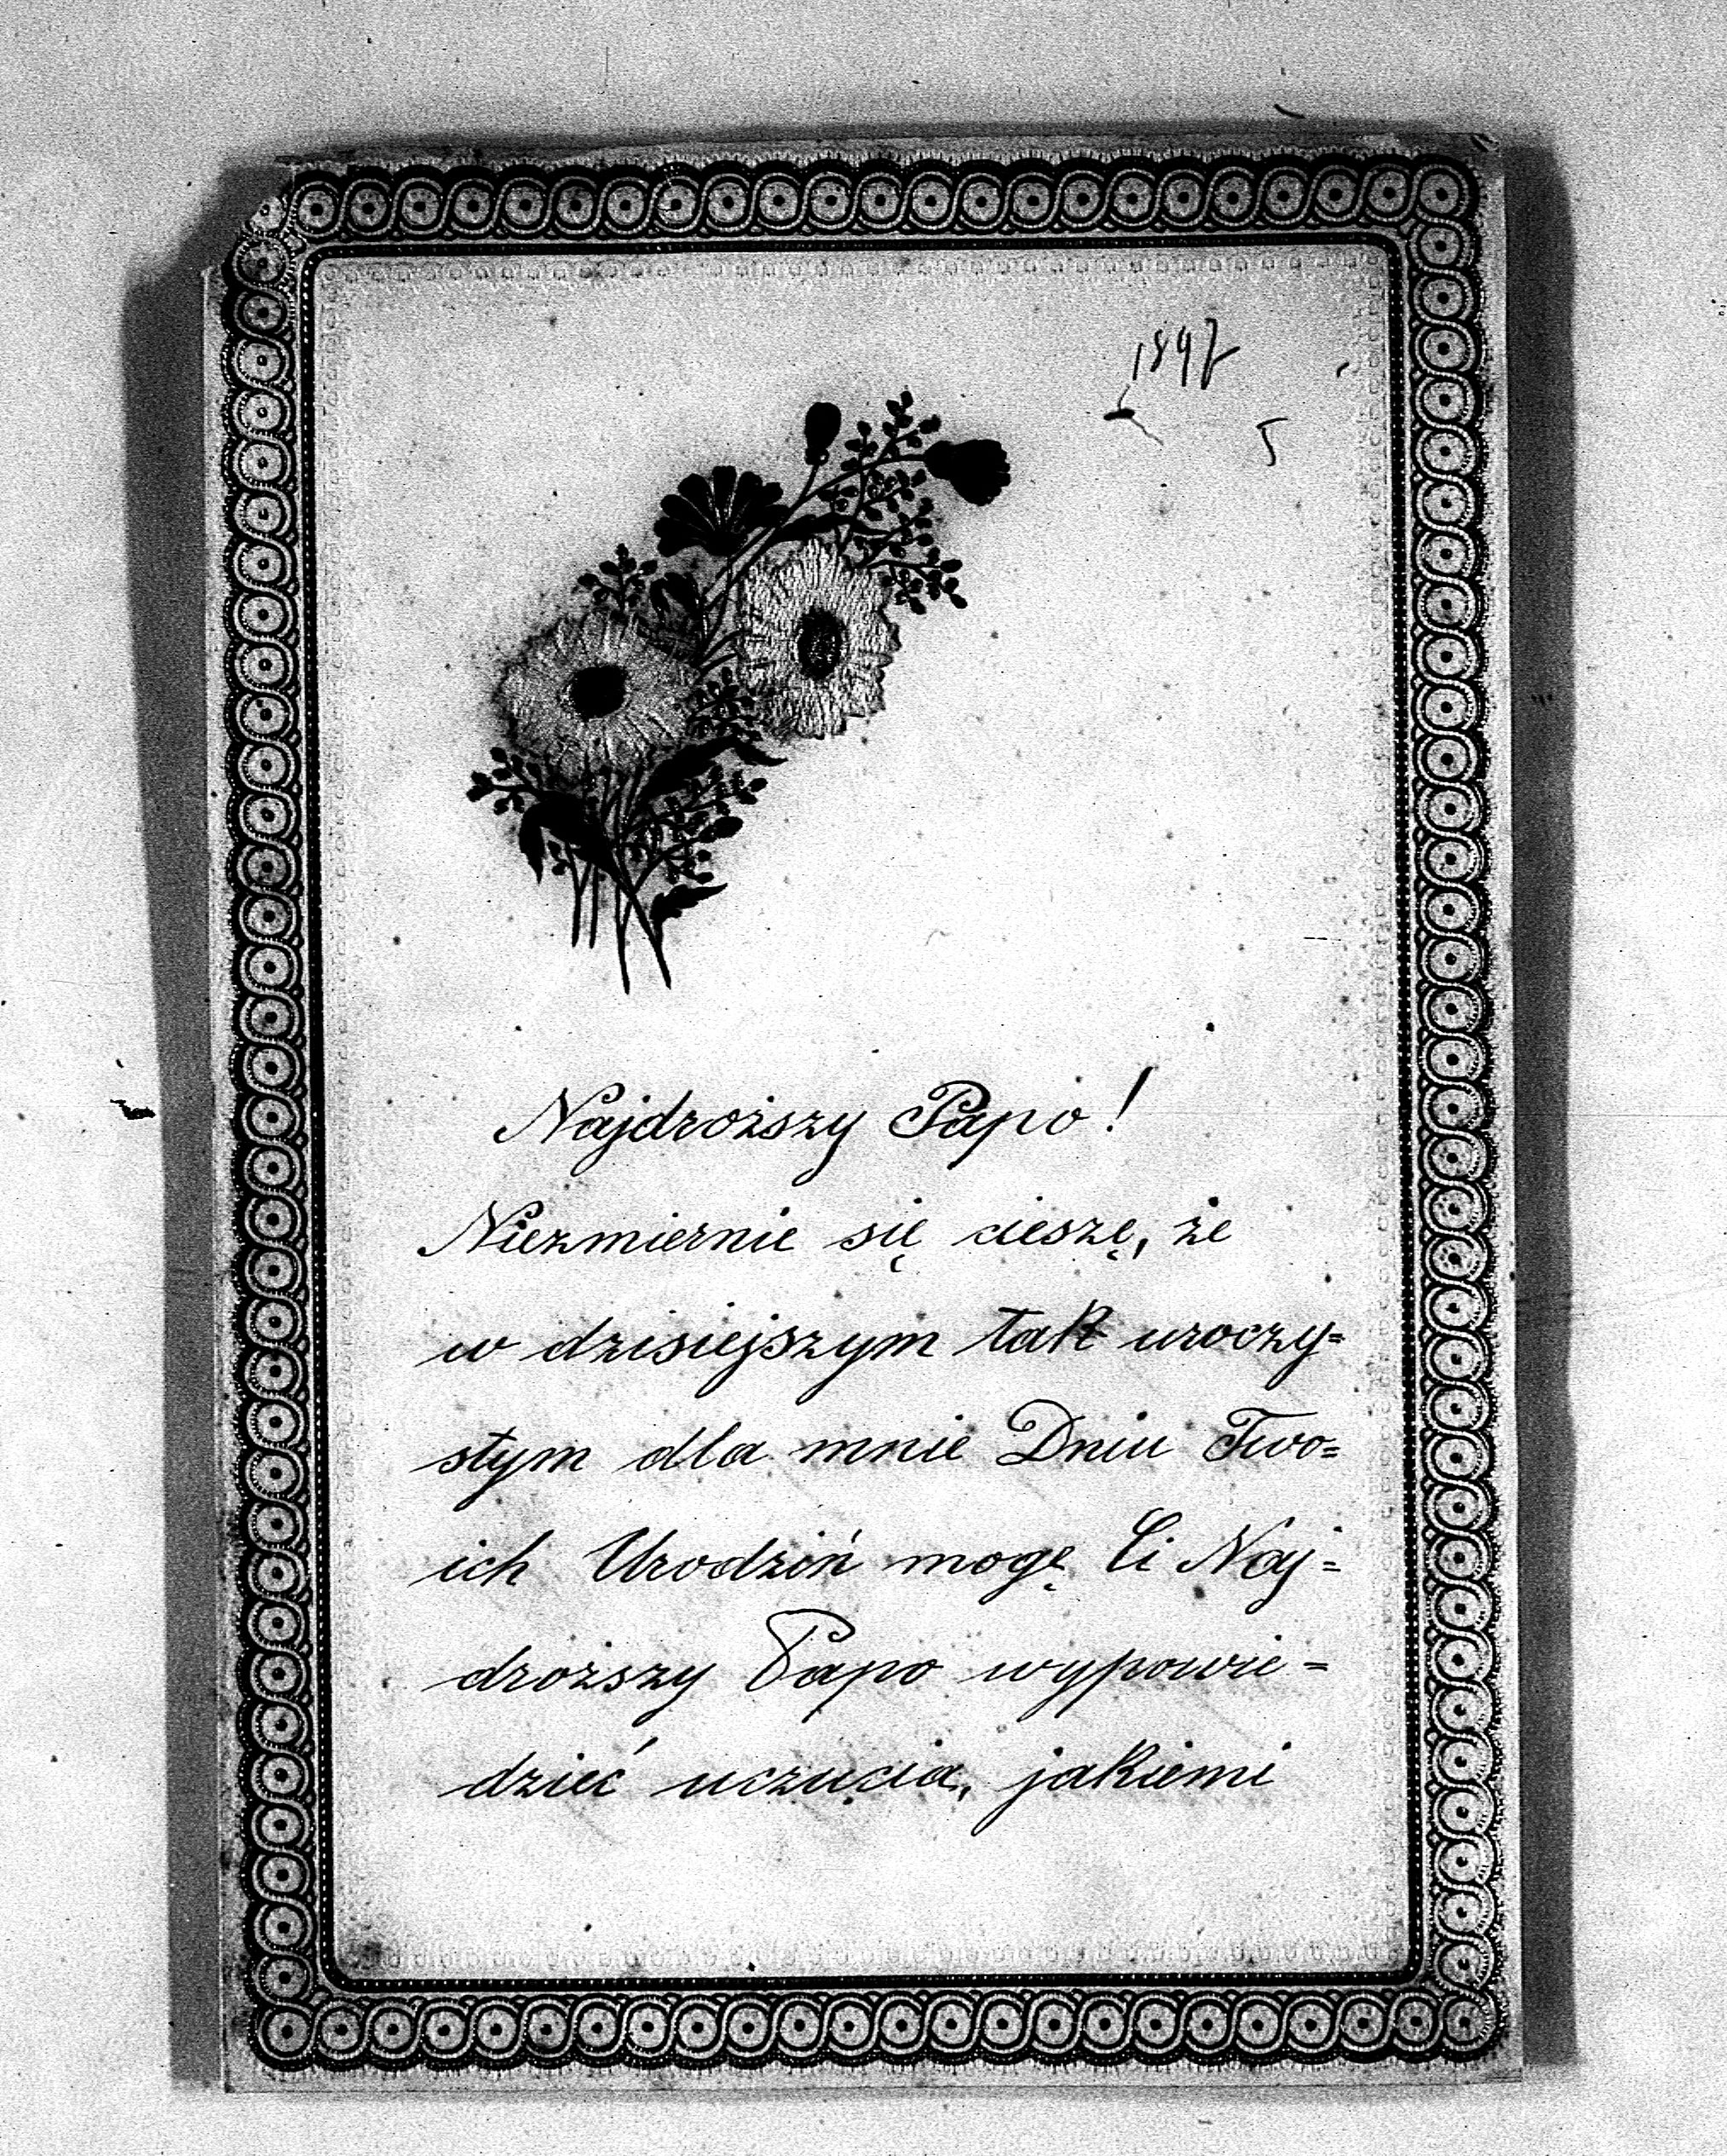 1897
5
Najdroższy Papo!
Niezmiernie się cieszę, że
w dzisiejszym tak uroczy=
stym dla mnie Dniu Two=
ich Urodziń mogę Ci Naj=
droższy Papo wypowie=
dzieć uczucia, jakiemi